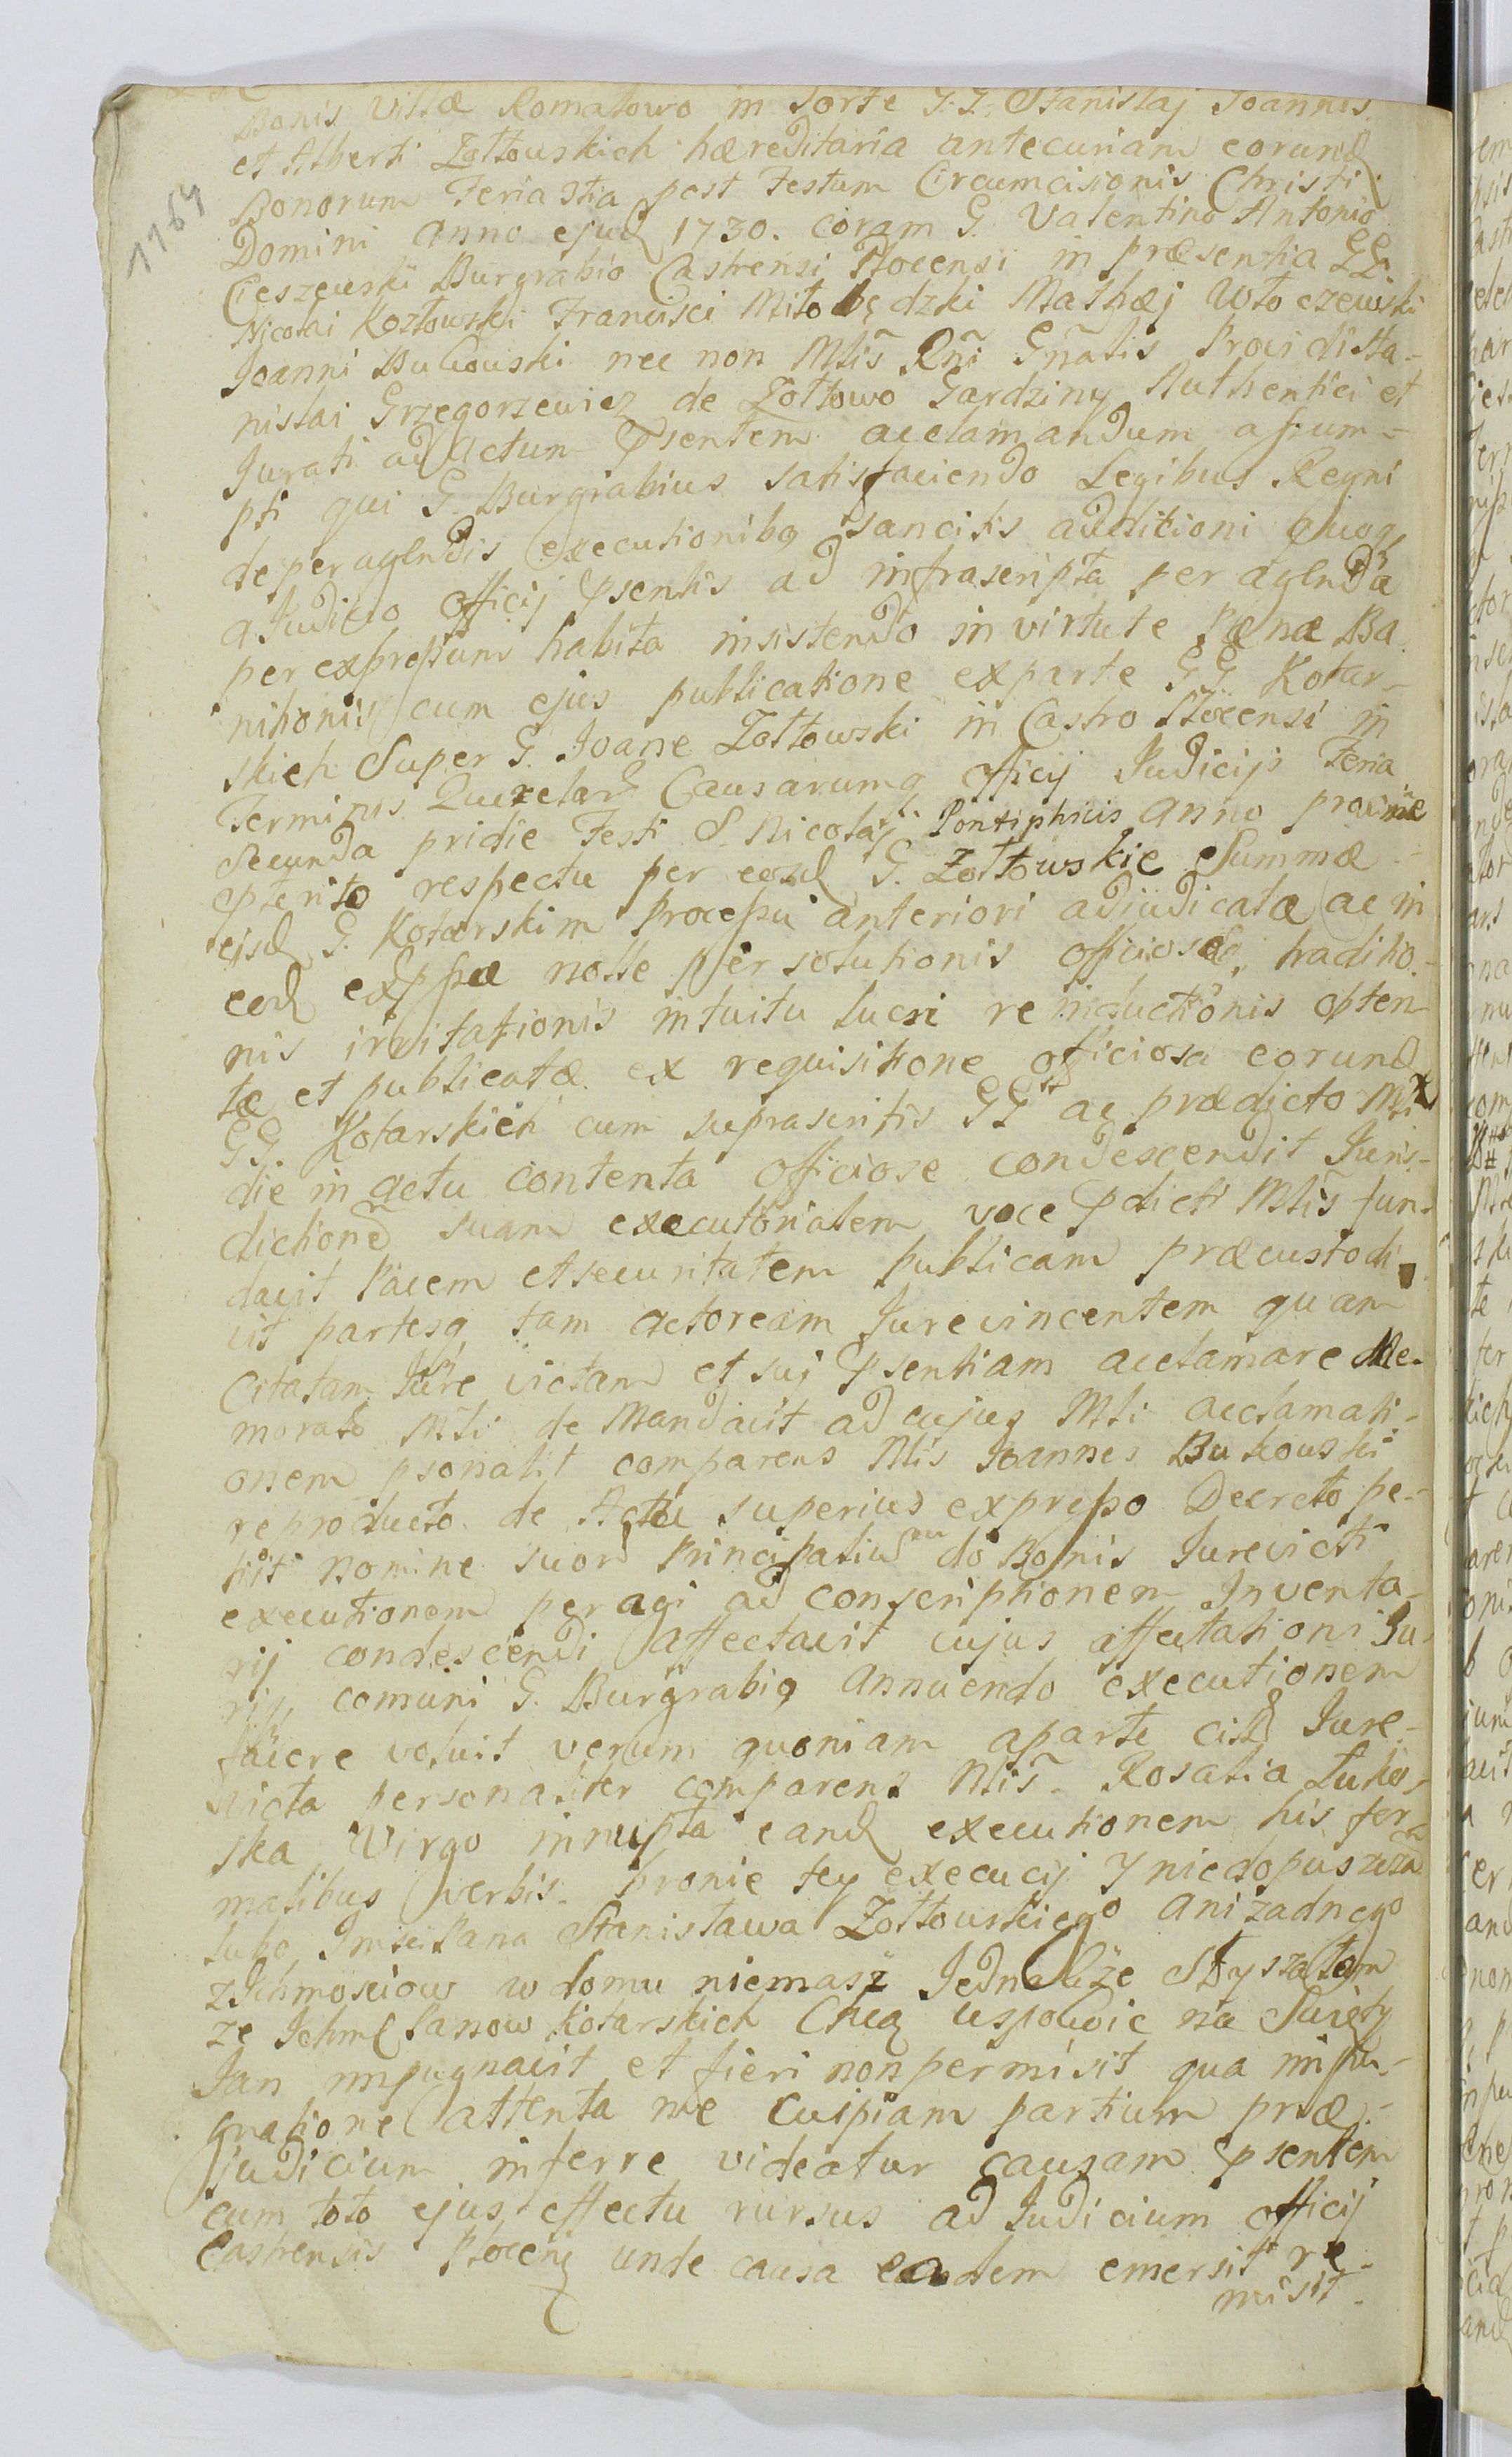 Bonis Villæ Romatowo in Sorte J. J. Stanislaj Joannis
et Alberti Zołtowskich hæreditaria antecuriam eorund
Bonorum Feria 3tia post Festum Circumcisionis Christi
1764
Domini anno ejusd 1730. coram G. Valentino Antonio
Cieszewski Burgrabio Castrensi Płocensi in præsentia GG.
Nicolai Kozłowski Francisci Miłobędzki Mathæj Włoczewski
Joanni Bukowski nec non Mtis Rni Gnalis Providi Sta-
nislai Grzegorzewicz de Zołtowo Gardziny Authentici et
Jurati ad Actum psentem acclamandum assum-
pti qui G. Burgrabius satisfaciendo Legibus Regni
de peragendis executionibq sancitis additioni quoq
a Judicio Officij psentis ad infrascripta peragenda
per expressum habita insistendo in virtute Pænæ Ba
nitionis cum ejus publicatione exparte GG. Kotar-
skich Super G. Joane Zołtowski in Castro Płocensi in
Terminis Querelar Causarumq officij Judicijs Feria
Secunda pridie Festi S. Nicolaj Pontiphicis anno proxime
pterito respectu per eosd G. Zołtowskie Summæ
eisd G. Kotarskim Processu anteriori adiudicatæ ac in
eod expssæ nolle persolutionis officiosæ, traditio-
nis irritationis intuitu lucri reinductionis obten
tæ et publicatæ ex requisitione officiosa eorund
GG. Kotarskich cum suprascriptis GG ac prædicto Mti
die in actu contenta officiose condescendit Juris-
dictione suam executorialem voce pdicti Mtis fun-
davit Pacem et securitatem publicam præcustodi
vit partesq tam actoream Jurevincentem quam
Citatam Jure victam et sui psentiam acclamare Me-
morato Mti de Mandavit ad cujus Mti acclamati-
onem psonalit comparens Mtis Joannes Bukowski
reproducto de Actu superius expresso Decreto pe-
tiit nomine suor Principaliu do Bonis Jurevicti
executionem peragi ad conscriptionem Inventa-
rij condescendi affectavit cujus affectationi Ju-
riq comuni G. Burgrabiq annuendo executionem
facere voluit verum quoniam aparte citt Jure-
victa personaliter comparens Mtis Rosalia Luko-
ska Virgo innupta eand executionem his for-
malibus verbis. bronie tey execucij Y niedopuszcza
lubo Jmści Pana Stanisława Zołtowskiego ani zadnego
z Ichmosciow w domu niemasz Jednakże słyszałam
ze Ichmć Panow Kotarskich Chcą uspokoic na Swięty
Jan impugnavit et fieri nonpermisit qua impu-
gnatione attenta ne cuipiam partium præ-
judicium inferre videatur causam psentem
cum toto ejus effectu rursus ad Judicium officij
Castrensis Płocens unde causa eadem emersit re-
misit.